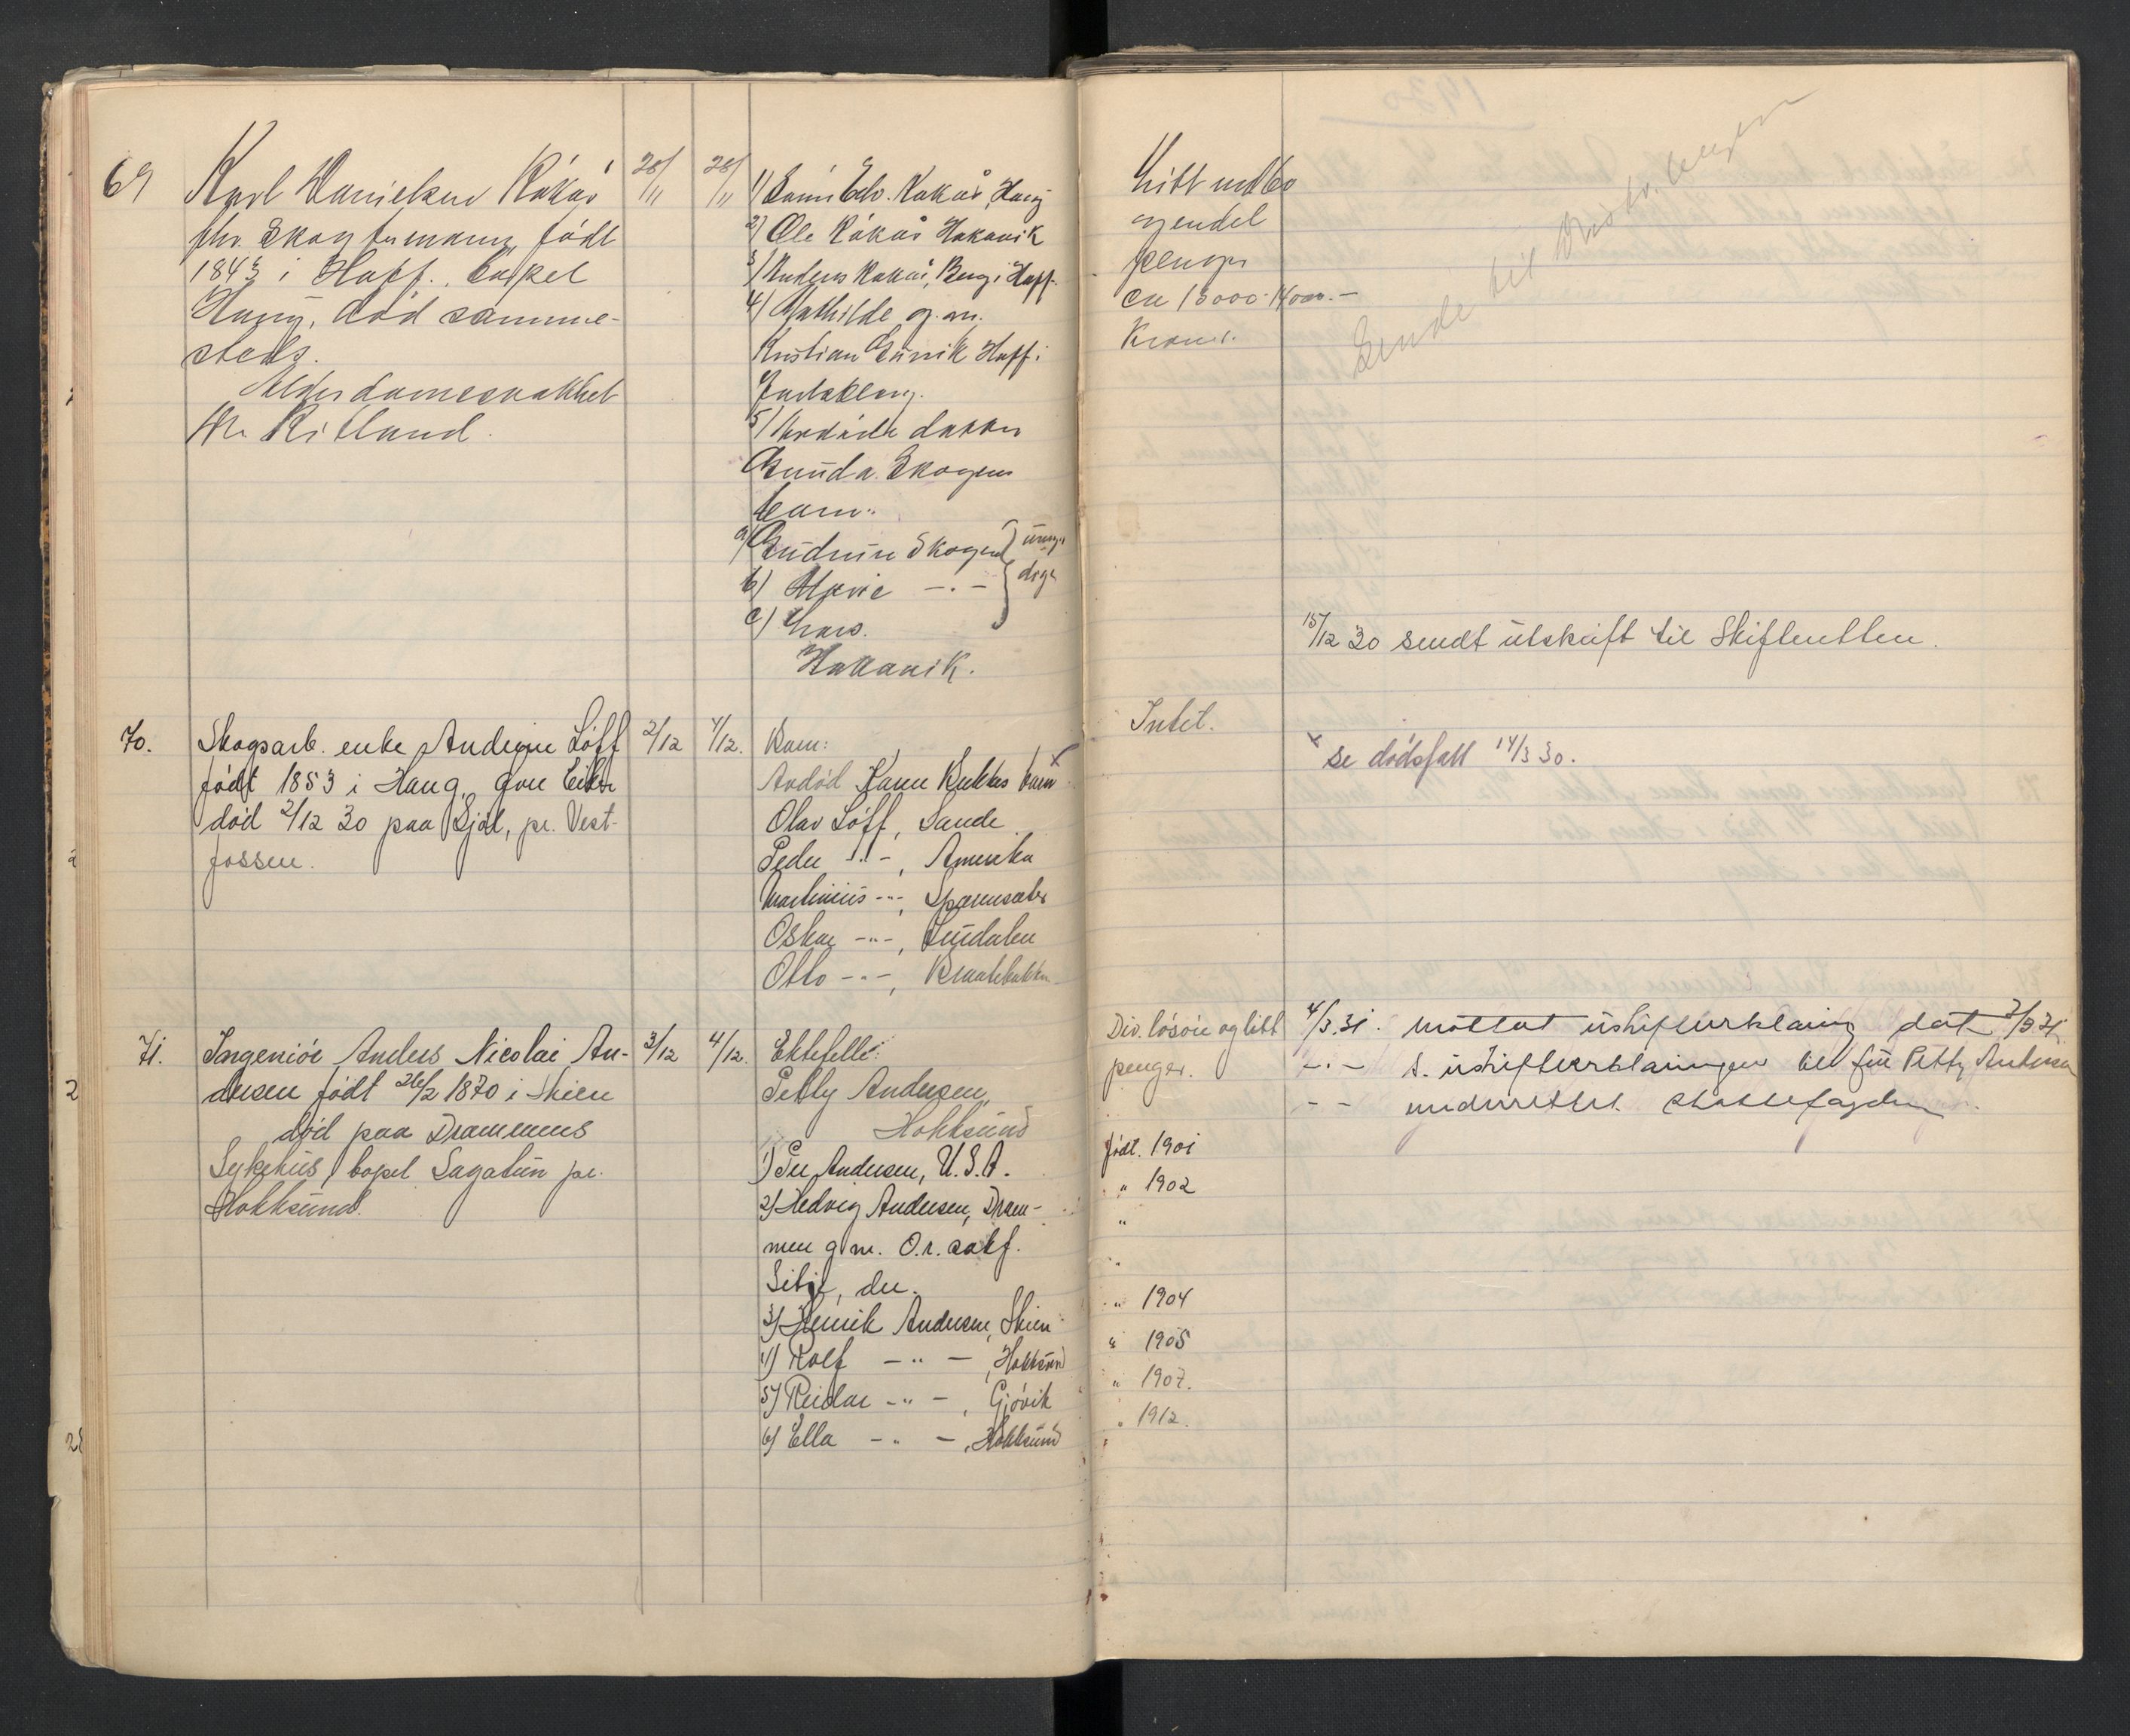 69
Karl Danielsen Kåkås
fhv. Skogformann, født
1843 i Hoff. Bopel
Haug, død samme-
steds.
Alderdomssvakhet
Dr. Kitland.
28/11
28/11
1) Edv. Kåkås, Haug
2) Ole Kåkås Hakavik
3) Anders Kåkås, Berg i Hoff.
4) Mathilde g. m.
Kristian Hoff i
Jarlsberg.
5) Avdøde datter
Gunda Skogens
barn:
a) Gudrun Skogen } umyn
b) Marie -"- } dige
c) Lars.
Hakavik.
Litt innbo
og endel
penger
ca 13000-14000.-
Kroner.
Sendt til
15/12 30 sendt utskrift til Skifteretten.
70.
Skogsarb. enke Andrine Løff
født 1853 i Haug, Øvre Eiker
død 2/12 30 paa Sjøl, pr. Vest-
fossen.
2/12
4/12.
Barn:
Avdød Karen Bakkes barn x
Olav Løff, Sande
Peder -"-, Amerika
Martinius -"-,
Oskar -"-,
Otto -"-,
Intet.
x se dødsfall 14/3 30.
71.
Ingeniør Anders Nicolai An-
dersen født 26/2 1870 i Skien
død paa Drammens
Sykehus, bopel Sagatun pr.
Hokksund.
3/12
4/12.
Ektefelle:
Petty Andersen,
Hokksund
1) Per Andersen, U.S.A.
2) Hedvig Andersen, Dram-
men g. m. O.r. sakf.
Sitje, der.
3) Henrik Andersen, Skien
4) Rolf -"-, Hokksund
5) Reidar -"-, Gjøvik
6) Ella -"-, Hokksund
Div. løsøre og litt
penger.
født. 1901
" 1902
"
"
" 1904
" 1905
" 1907.
" 1912.
4/3.31. mottat uskifteerklæring dat 2/3 31
-"- s. uskifteerklæringen til fru Petty Andersen
- - underrettet skattefogden.